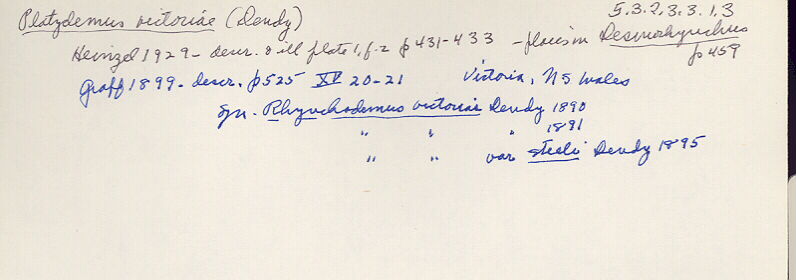 Platydemus victoriae (Dendy)
5.3.2.3.3.1.3
Heinzel 1929 - descr. & ill plate 1, f. 2 p 431-433 - places in Desmorhynchus
p 459
Graff 1899 - descr. p 525 XV 20-21 Victoria, NS Wales
syn. Rhynchodemus victoriae Dendy 1890
" " " 1891
" " var steeli Dendy 1895